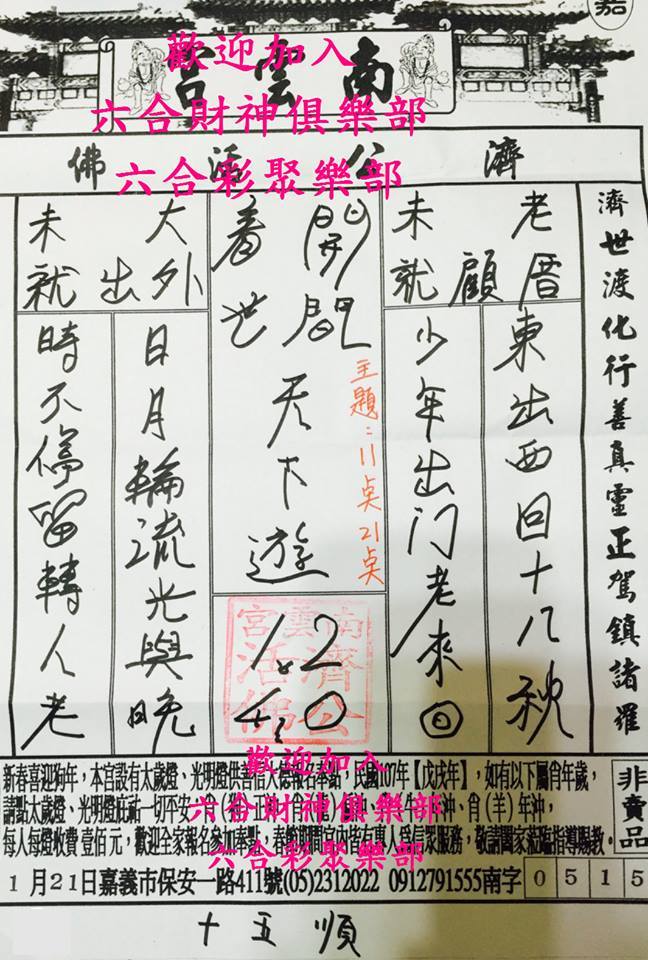 嘉
南雲宮
歡迎加入
六合財神俱樂部
六合彩聚樂部
濟公活佛
濟世渡化行善真靈正駕鎮諸羅
老厝顧未就
東出西回十八秋
少年出门老來回
主題：11点21点
開
看世
天下遊
南雲宮
濟公
活佛
1.2
4.0
大外出未就
日月輪流光與晚
時不停留轉人老
新春喜迎狗年，本宮設有太歲燈、光明燈供善信大德報名奉點，民國107年【戊戌年】，如有以下屬肖年歲，
請點太歲燈、光明燈庇祐一切平安，肖（羊）年沖，
每人每燈收費壹佰元，歡迎全家報名參加奉點，春節期間宮內皆有專人為信眾服務，敬請闔家蒞臨指導賜教。
非賣品
歡迎加入
六合財神俱樂部
六合彩聚樂部
1月21日嘉義市保安一路411號(05)2312022 0912791555南字 0515
十五順